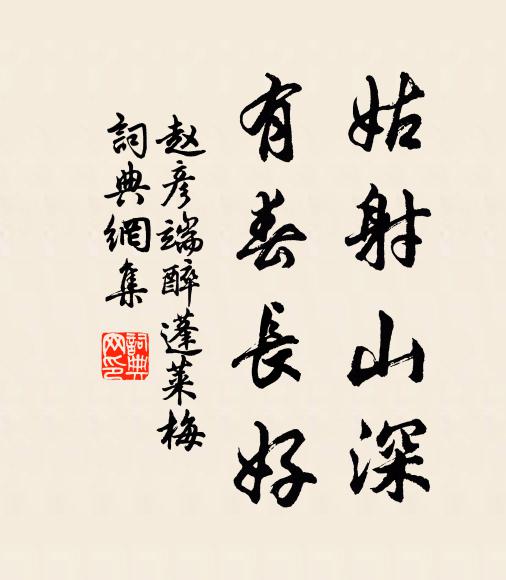 姑射山深
有春長好
赵彥端醉蓬萊梅
詞典網集
詞典
网印